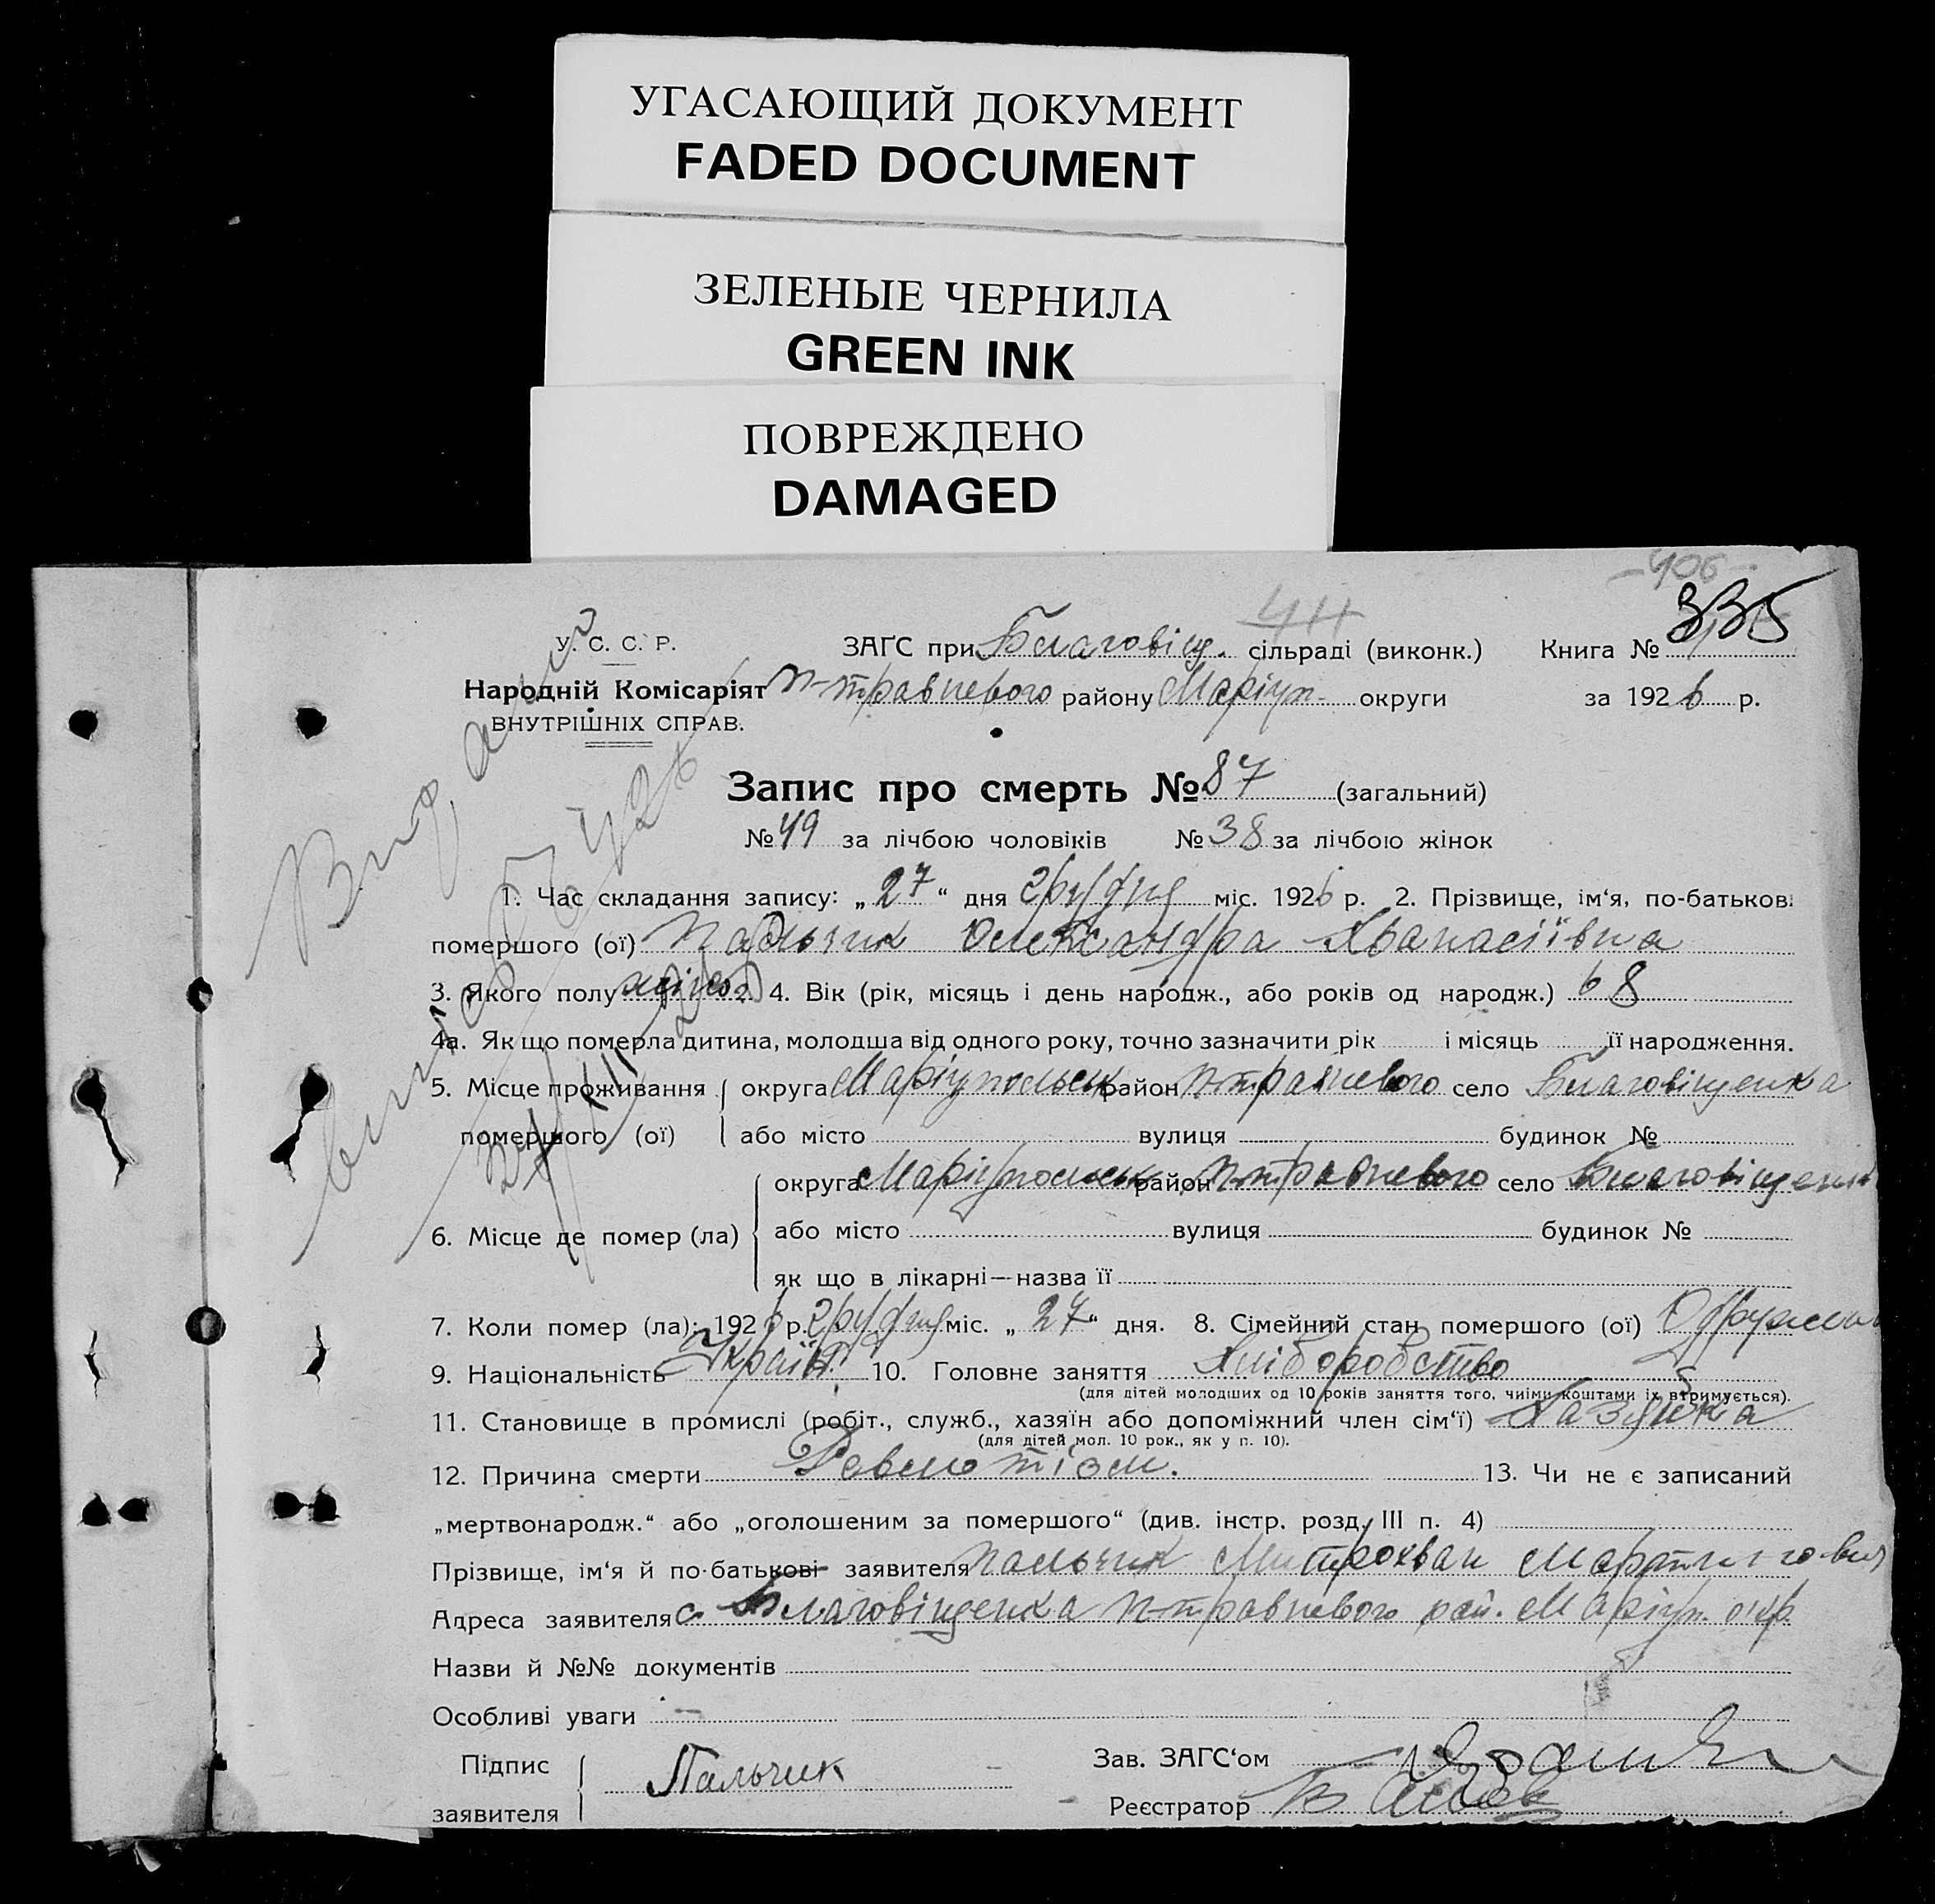 УГАСАЮЩИЙ ДОКУМЕНТ
FADED DOCUMENT
ЗЕЛЕНЫЕ ЧЕРНИЛА
GREEN INK
ПОВРЕЖДЕНО
DAMAGED
406
335
У. С. С. Р. ЗАҐС при Благовіщ. сільраді (виконк.) Книга №
Народній Комісаріят П-травневого району Маріуп. округи за 1926 р.
ВНУТРІШНІХ СПРАВ.
Запис про смерть № 87 (загальний)
№ 49 за лічбою чоловіків № 38 за лічбою жінок
1. Час складання запису: „27“ дня грудня міс. 1926 р. 2. Прізвище, ім‘я, по-батькові
помершого (ої) Пальчик Олександра Хванасіївна
3. Якого полу жіноч. 4. Вік (рік, місяць і день народж., або років од народж.) 68
4а. Як що померла дитина, молодша від одного року, точно зазначити рік і місяць її народження.
5. Місце проживання округа Маріупольськ район П-травневого село Благовіщенка
помершого (ої) або місто вулиця будинок №
округа Маріупольськ район П-травневого село Благовіщенк
6. Місце де помер (ла) або місто вулиця будинок №
як що в лікарні—назва її
7. Коли помер (ла): 1926 р. грудня міс. „27“ дня. 8. Сімейний стан помершого (ої) Одружен
9. Національність Україн. 10. Головне заняття Хліборобство
(для дітей молодших од 10 років заняття того, чиїми коштами їх втримується).
11. Становище в промислі (робіт., служб., хазяїн або допоміжний член сім‘ї) Хазяйка
(для дітей мол. 10 рок., як у п. 10).
12. Причина смерти Ревматізм. 13. Чи не є записаний
„мертвонародж.“ або „оголошеним за помершого“ (див. інстр. розд. III п. 4)
Прізвище, ім‘я й по-батькові заявителя Пальчик Митрохван Мартинович
Адреса заявителя с. Благовіщенка П-травневого рай. Маріуп. окр.
Назви й №№ документів
Особливі уваги —
Підпис Пальчик Зав. ЗАҐС‘ом
заявителя Реєстратор